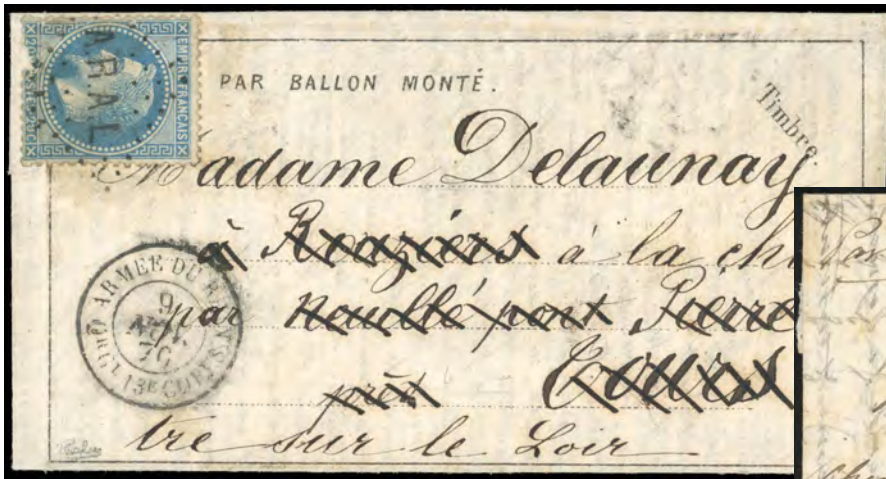 EMPIRE FRANÇAIS
ARAL
PAR BALLON MONTÉ.
Timbre.
Madame Delaunay
à Rouziers à la ch
par Neuillé pont Pierre
près Tours
tre sur le Loir
ARMÉE DU RHIN
9
NOV.
70
13E CORPS